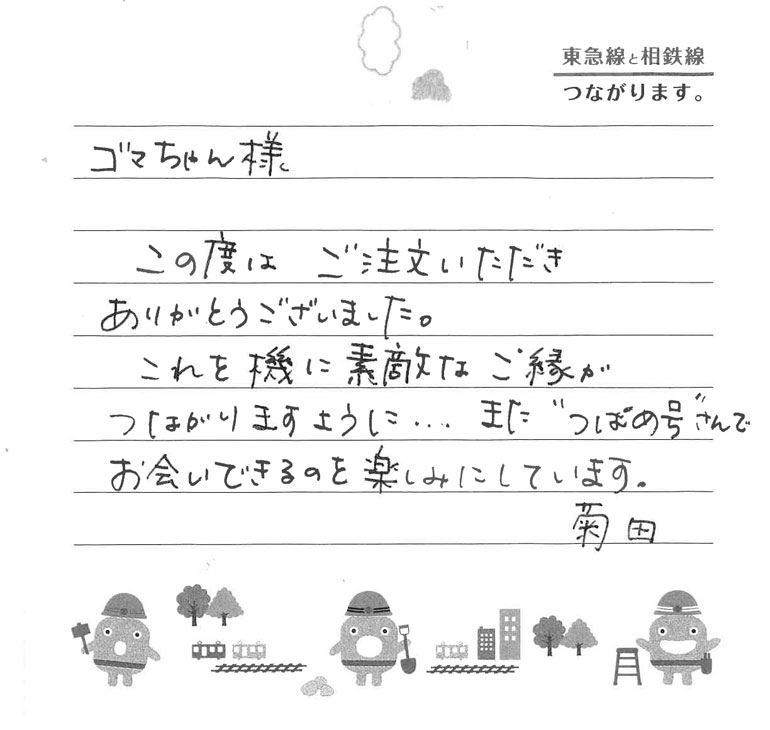 東急線と相鉄線
つながります。
ゴマちゃん様
この度は ご注文いただき
ありがとうございました。
これを機に素敵な ご縁が
つながりますように... また"つばめ号"さんで
お会いできるのを楽しみにしています。
菊田